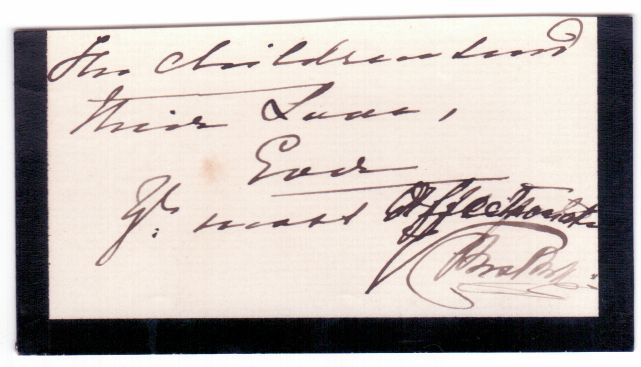 The children send
their Love,
Ever
Yr. most affectionate